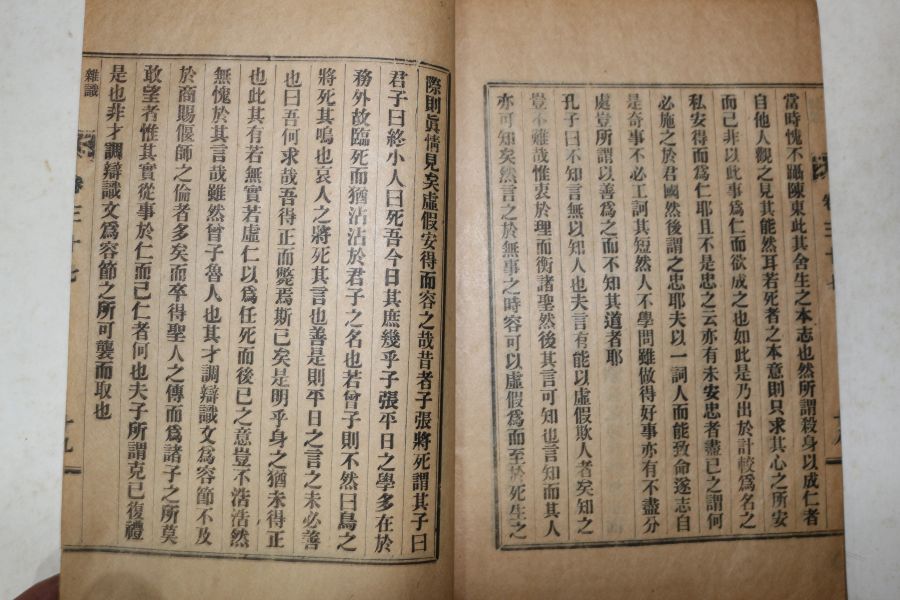 當時愧不躡陳東此其舍生之本志也然所謂殺身以成仁者
自他人觀之見其能然耳若死者之本意則只求其心之所安
而已非以此事爲仁而欲成之也如此是乃出於計較爲名之
私安得而爲仁耶且不是忠之云亦有未安忠者盡己之謂何
必施之於君國然後謂之忠耶夫以一詞人而能致命遂志自
是奇事不必工訶其短然人不學問雖做得好事亦有不盡分
處豈所謂以善爲之而不知其道者耶
孔子曰不知言無以知人也夫言有能以虛假欺人者矣知之
豈不難哉惟衷於理而衡諸聖然後其言可知也言知而其人
亦可知矣然言之於無事之時容可以虛假爲而至於死生之
際則眞情見矣虛假安得而容之哉昔者子張將死謂其子曰
君子曰終小人曰死吾今日其庶幾乎子張平日之學多在於
務外故臨死而猶沾沾於君子之名也若曾子則不然曰鳥之
將死其鳴也哀人之將死其言也善是則平日之言之未必善
也曰吾何求哉吾得正而斃焉斯已矣是明乎身之猶未得正
也此其有若無實若虛仁以爲任死而後已之意豈不浩浩然
無愧於其言哉雖然曾子魯人也其才調辯識文爲容節不及
於商賜偃師之倫者多矣而卒得聖人之傳而爲諸子之所莫
敢望者惟其實從事於仁而已仁者何也夫子所謂克己復禮
是也非才調辯識文爲容節之所可襲而取也
雜識
卷三十七
十九